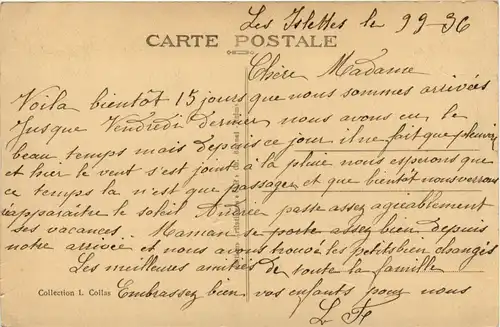 Les Islettes le 9 9-36
CARTE POSTALE
Chère Madame
Voila bientôt 15 jours que nous sommes arrivées
Jusque Vendredi dernier nous avons eu le
beau temps mais depuis ce jour il ne fait que pleuvoir
et hier le vent s'est joint à la pluie nous esperons que
ce temps la n'est que passager et que bientôt nous verrons
réapparaître le soleil Andrée passe assez agréablement
ses vacances. Maman se porte assez bien depuis
notre arrivée et nous avons trouvé les petits bien changés
Les meilleures amitiés de toute la famille
Collection L. Collas Embrassez bien vos enfants pour nous
L F